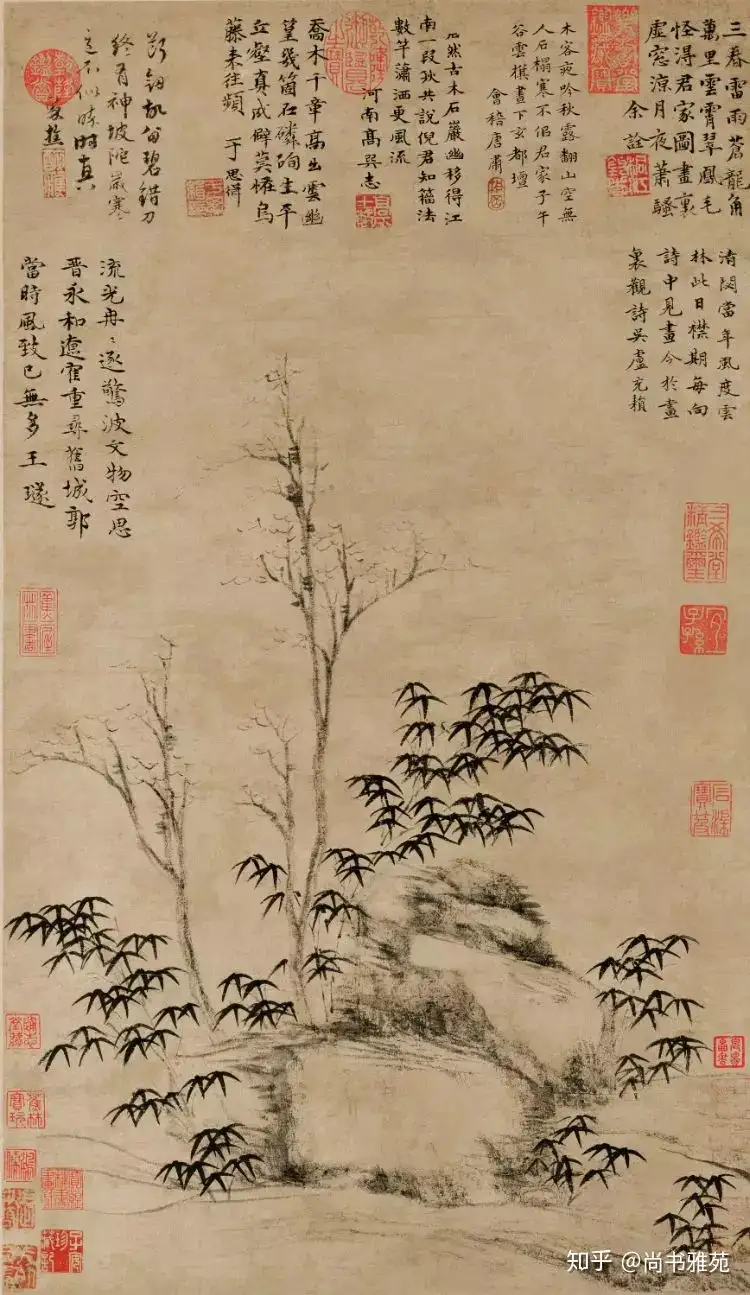 三春雷雨蒼龍角
萬里雲霄翠鳳毛
怪得君家圖畫裏
虛窓涼月夜蕭騷
余詮
木客吟秋露翻山空無
人石榻寒不侶君家子午
谷雲模畫下玄都壇
會稽唐肅
兀然古木石巖幽移得江
南一段秋共說倪君知籀法
數竿瀟洒更風流
河南高巽志
喬木千章高出雲幽
篁幾箇石磷生平
立壑真成癖莫怪烏
藤來往頻 于思緝
碧錯刀
終有神坡陀巖寒
時真
清閟當年風度雲
林此日襟期每向
詩中見畫今於畫
裏觀詩吳盧充頖
流光冉〻逐驚波文物空思
晉永和遼寉重尋舊城郭
當時風致已無多王璲
三希堂
精鑑璽
宜子孫
石渠
寶笈
知乎 @尚书雅苑